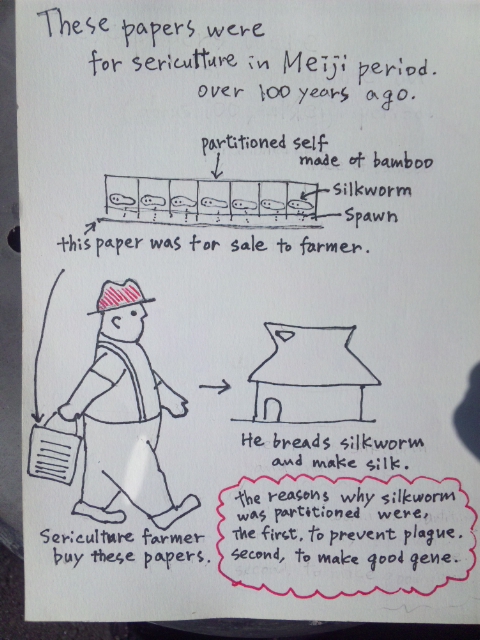 These papers were
for sericulture in Meiji period.
over 100 years ago.
partitioned self
made of bamboo
Silkworm
Spawn
this paper was for sale to farmer.
He breads silkworm
and make silk.
Sericulture farmer
buy these papers.
the reasons why silkworm
was partitioned were,
the first, to prevent plague.
second, to make good gene.